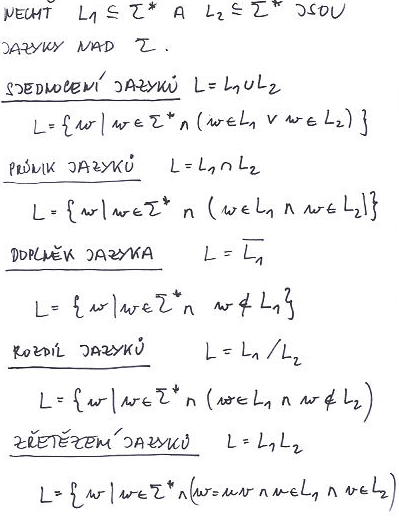 NECHŤ L₁ ⊆ Σ* A L₂ ⊆ Σ* JSOU
JAZYKY NAD Σ.
SJEDNOCENÍ JAZYKŮ L = L₁ ∪ L₂
L = { w | w ∈ Σ* ∧ (w ∈ L₁ ∨ w ∈ L₂) }
PRŮNIK JAZYKŮ L = L₁ ∩ L₂
L = { w | w ∈ Σ* ∧ (w ∈ L₁ ∧ w ∈ L₂) }
DOPLNĚK JAZYKA L = L̅₁
L = { w | w ∈ Σ* ∧ w ∉ L₁ }
ROZDÍL JAZYKŮ L = L₁ / L₂
L = { w | w ∈ Σ* ∧ (w ∈ L₁ ∧ w ∉ L₂)
ZŘETĚZENÍ JAZYKŮ L = L₁L₂
L = { w | w ∈ Σ* ∧ (w = uv ∧ u ∈ L₁ ∧ v ∈ L₂)